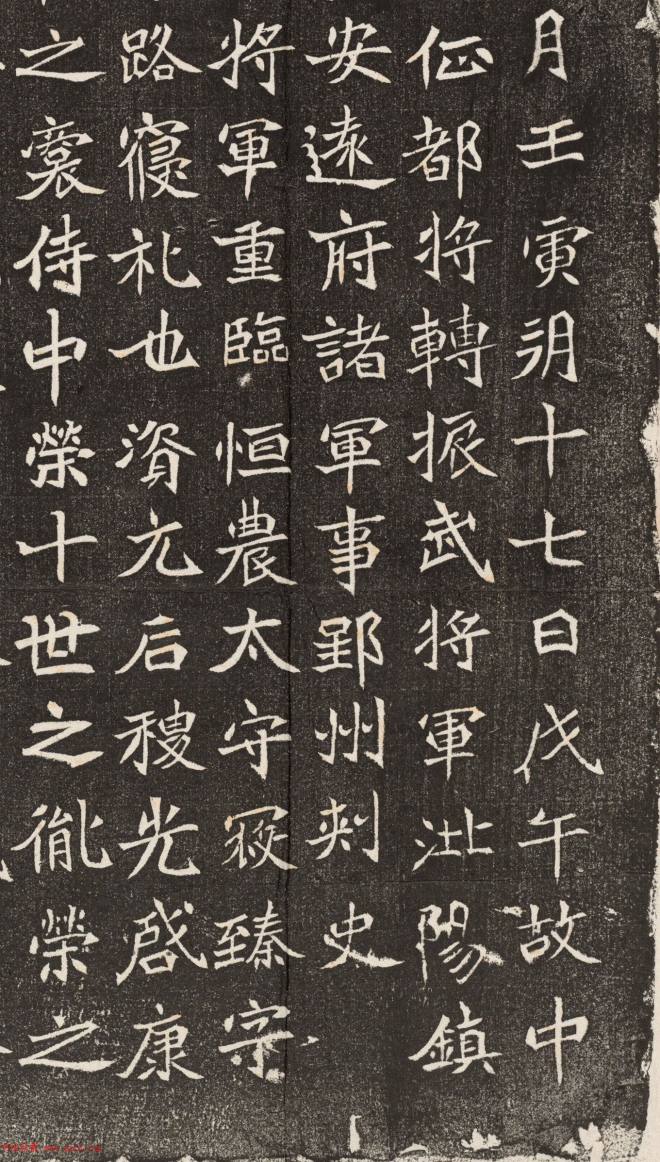 月壬寅朔十七日戊午故中
征都将轉振武将軍沘陽鎮
安遠府諸軍事郢州刺史
将軍重臨恒農太守寇臻字
路寢礼也資元后稷光啟康
之裔侍中榮十世之胤榮之